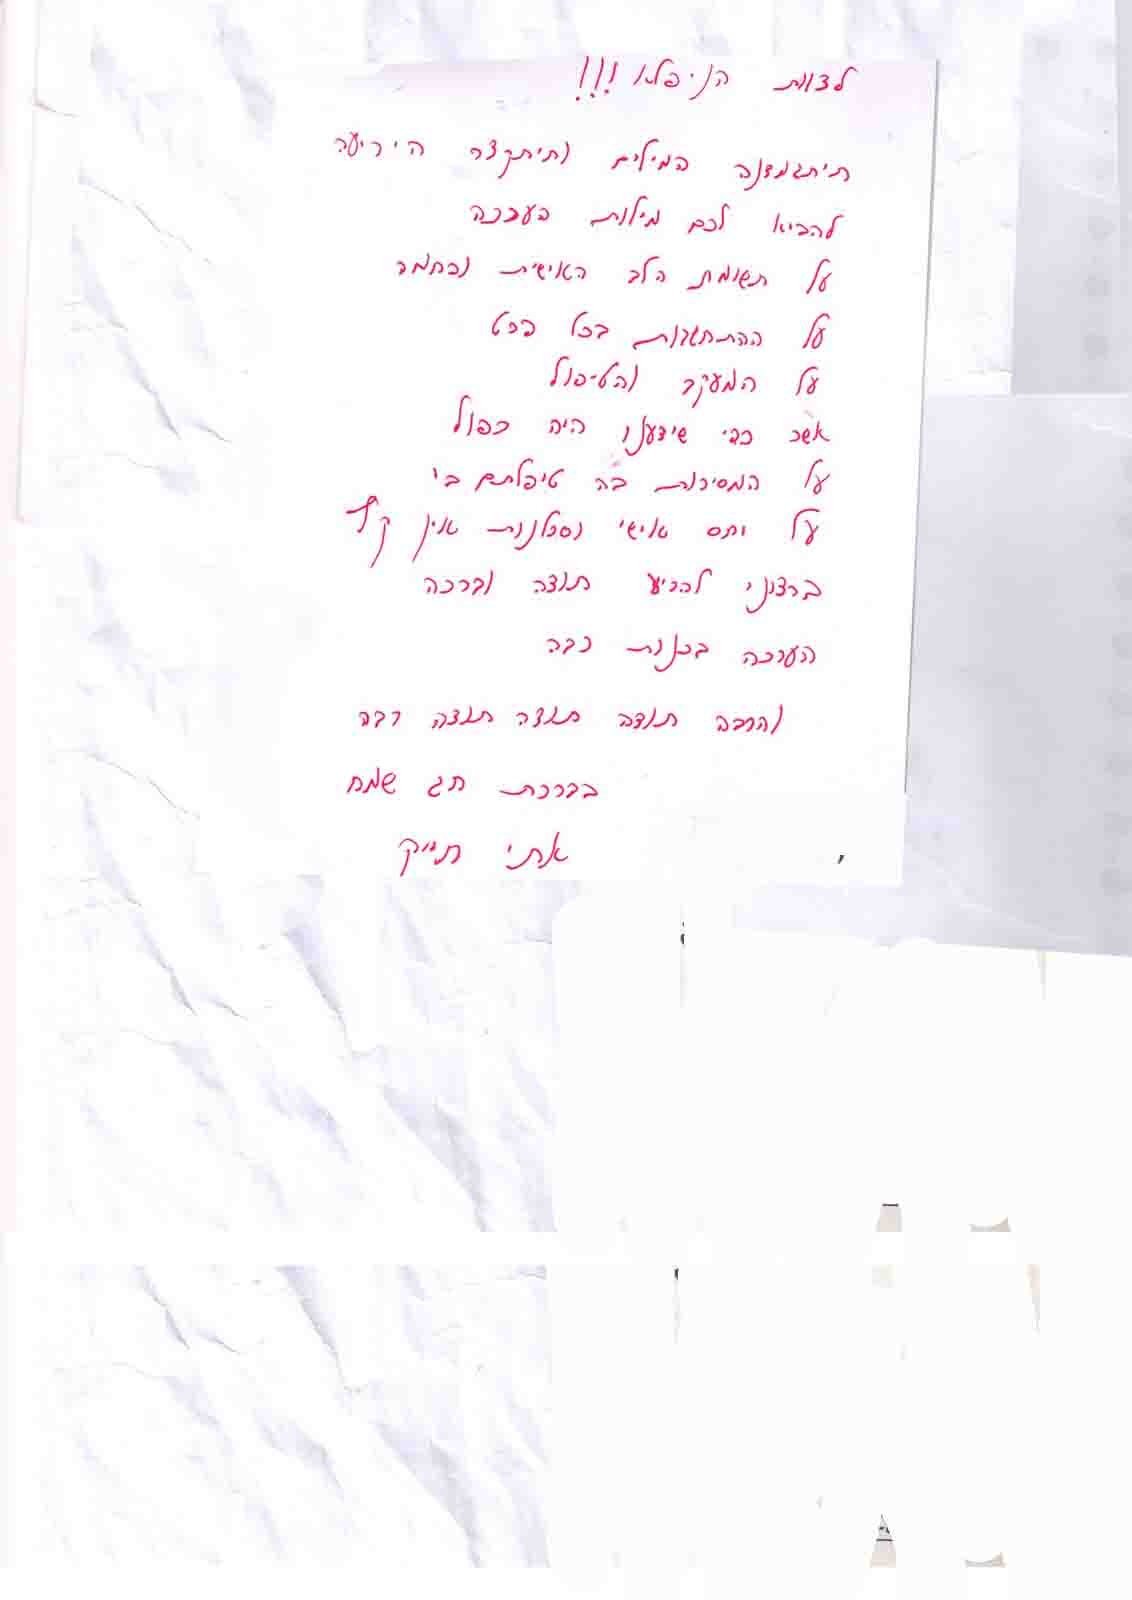 לצוות הניפלא!!!
תיתגמדנה המילים ותיתקצר היריעה
להביא לכם מילות הערכה
על תשומת הלב האישית והחמה
על ההתחשבות בכל פרט
על המעקב והטיפול
אשר כפי שידענו היה כפול
על המסירות בה טיפלתם בי
על יחס אישי וסבלנות אין קץ
ברצוני להביע תודה וברכה
הערכה בכנות רבה
והרבה תודה תודה תודה רבה
בברכת חג שמח
אתי